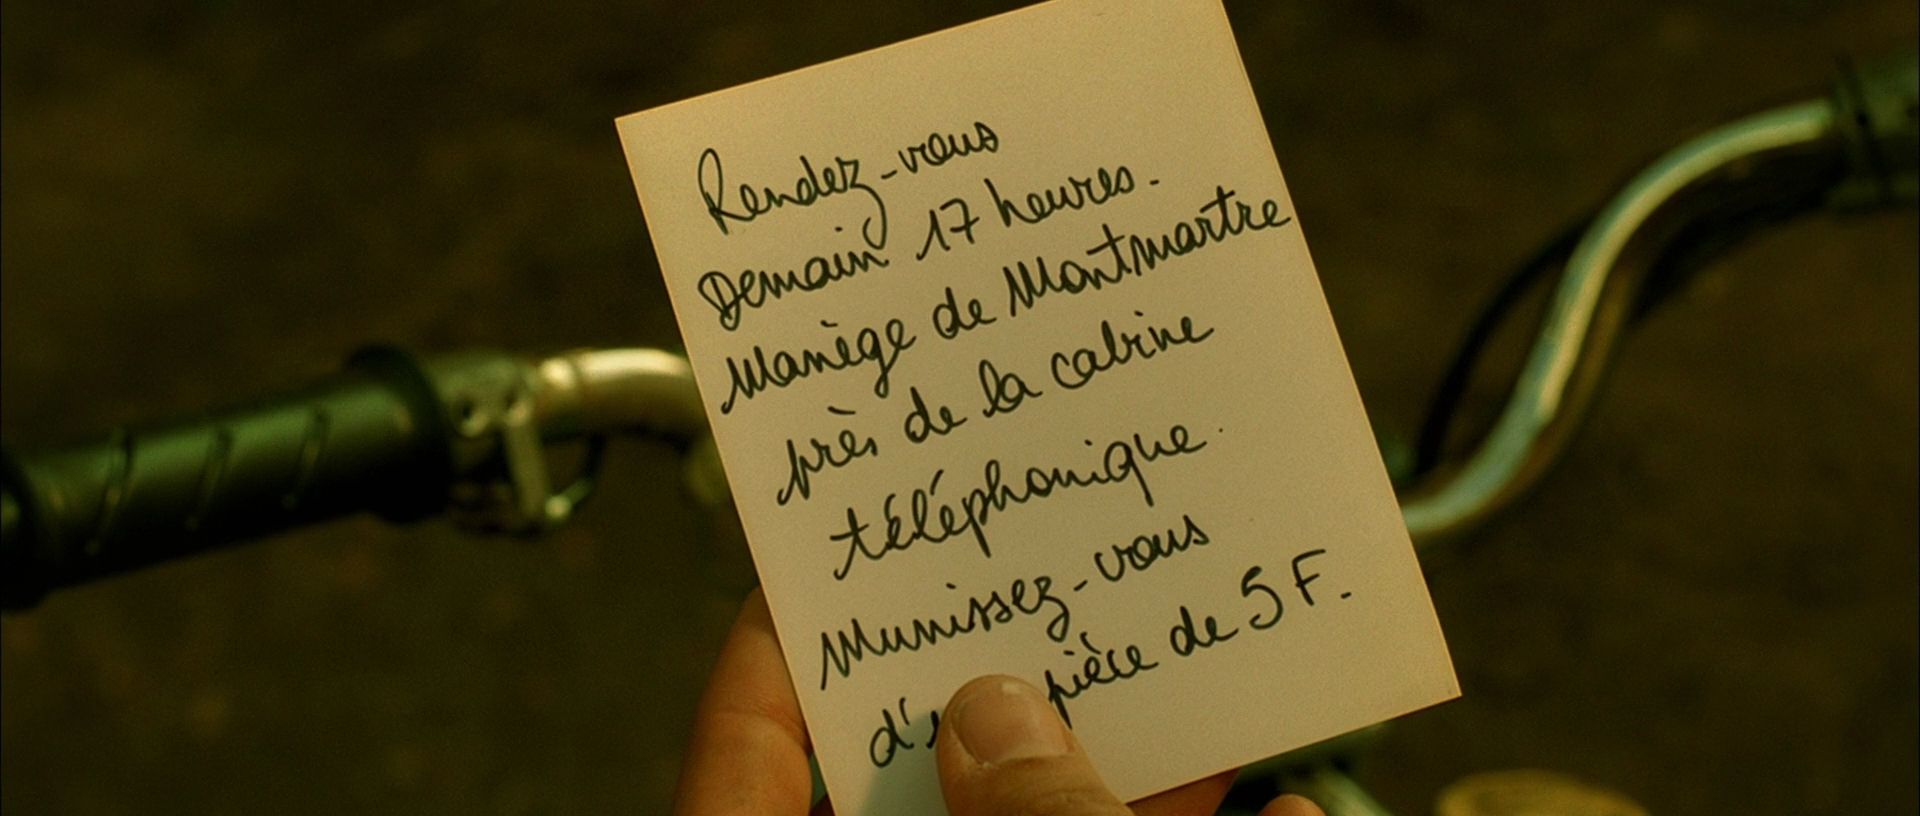 Rendez-vous
Demain 17 heures.
Manège de Montmartre
près de la cabine
téléphonique.
Munissez-vous
pièce de 5 F.